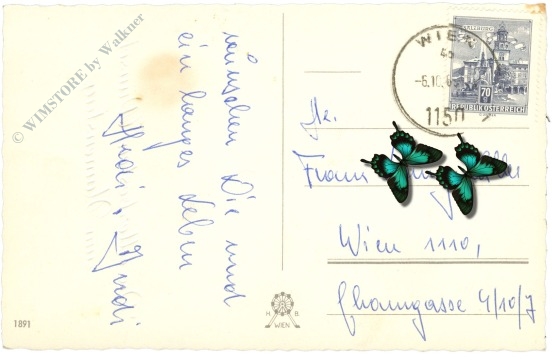 © WIMSTORE by Walkner
wünschen Die und
ein langes Leben
Hedi + Rudi
1891
H B
WIEN
WIEN
-5.10.
1150
SALZBURG
70
REPUBLIK ÖSTERREICH
Franz
Wien 1110,
4/10/7